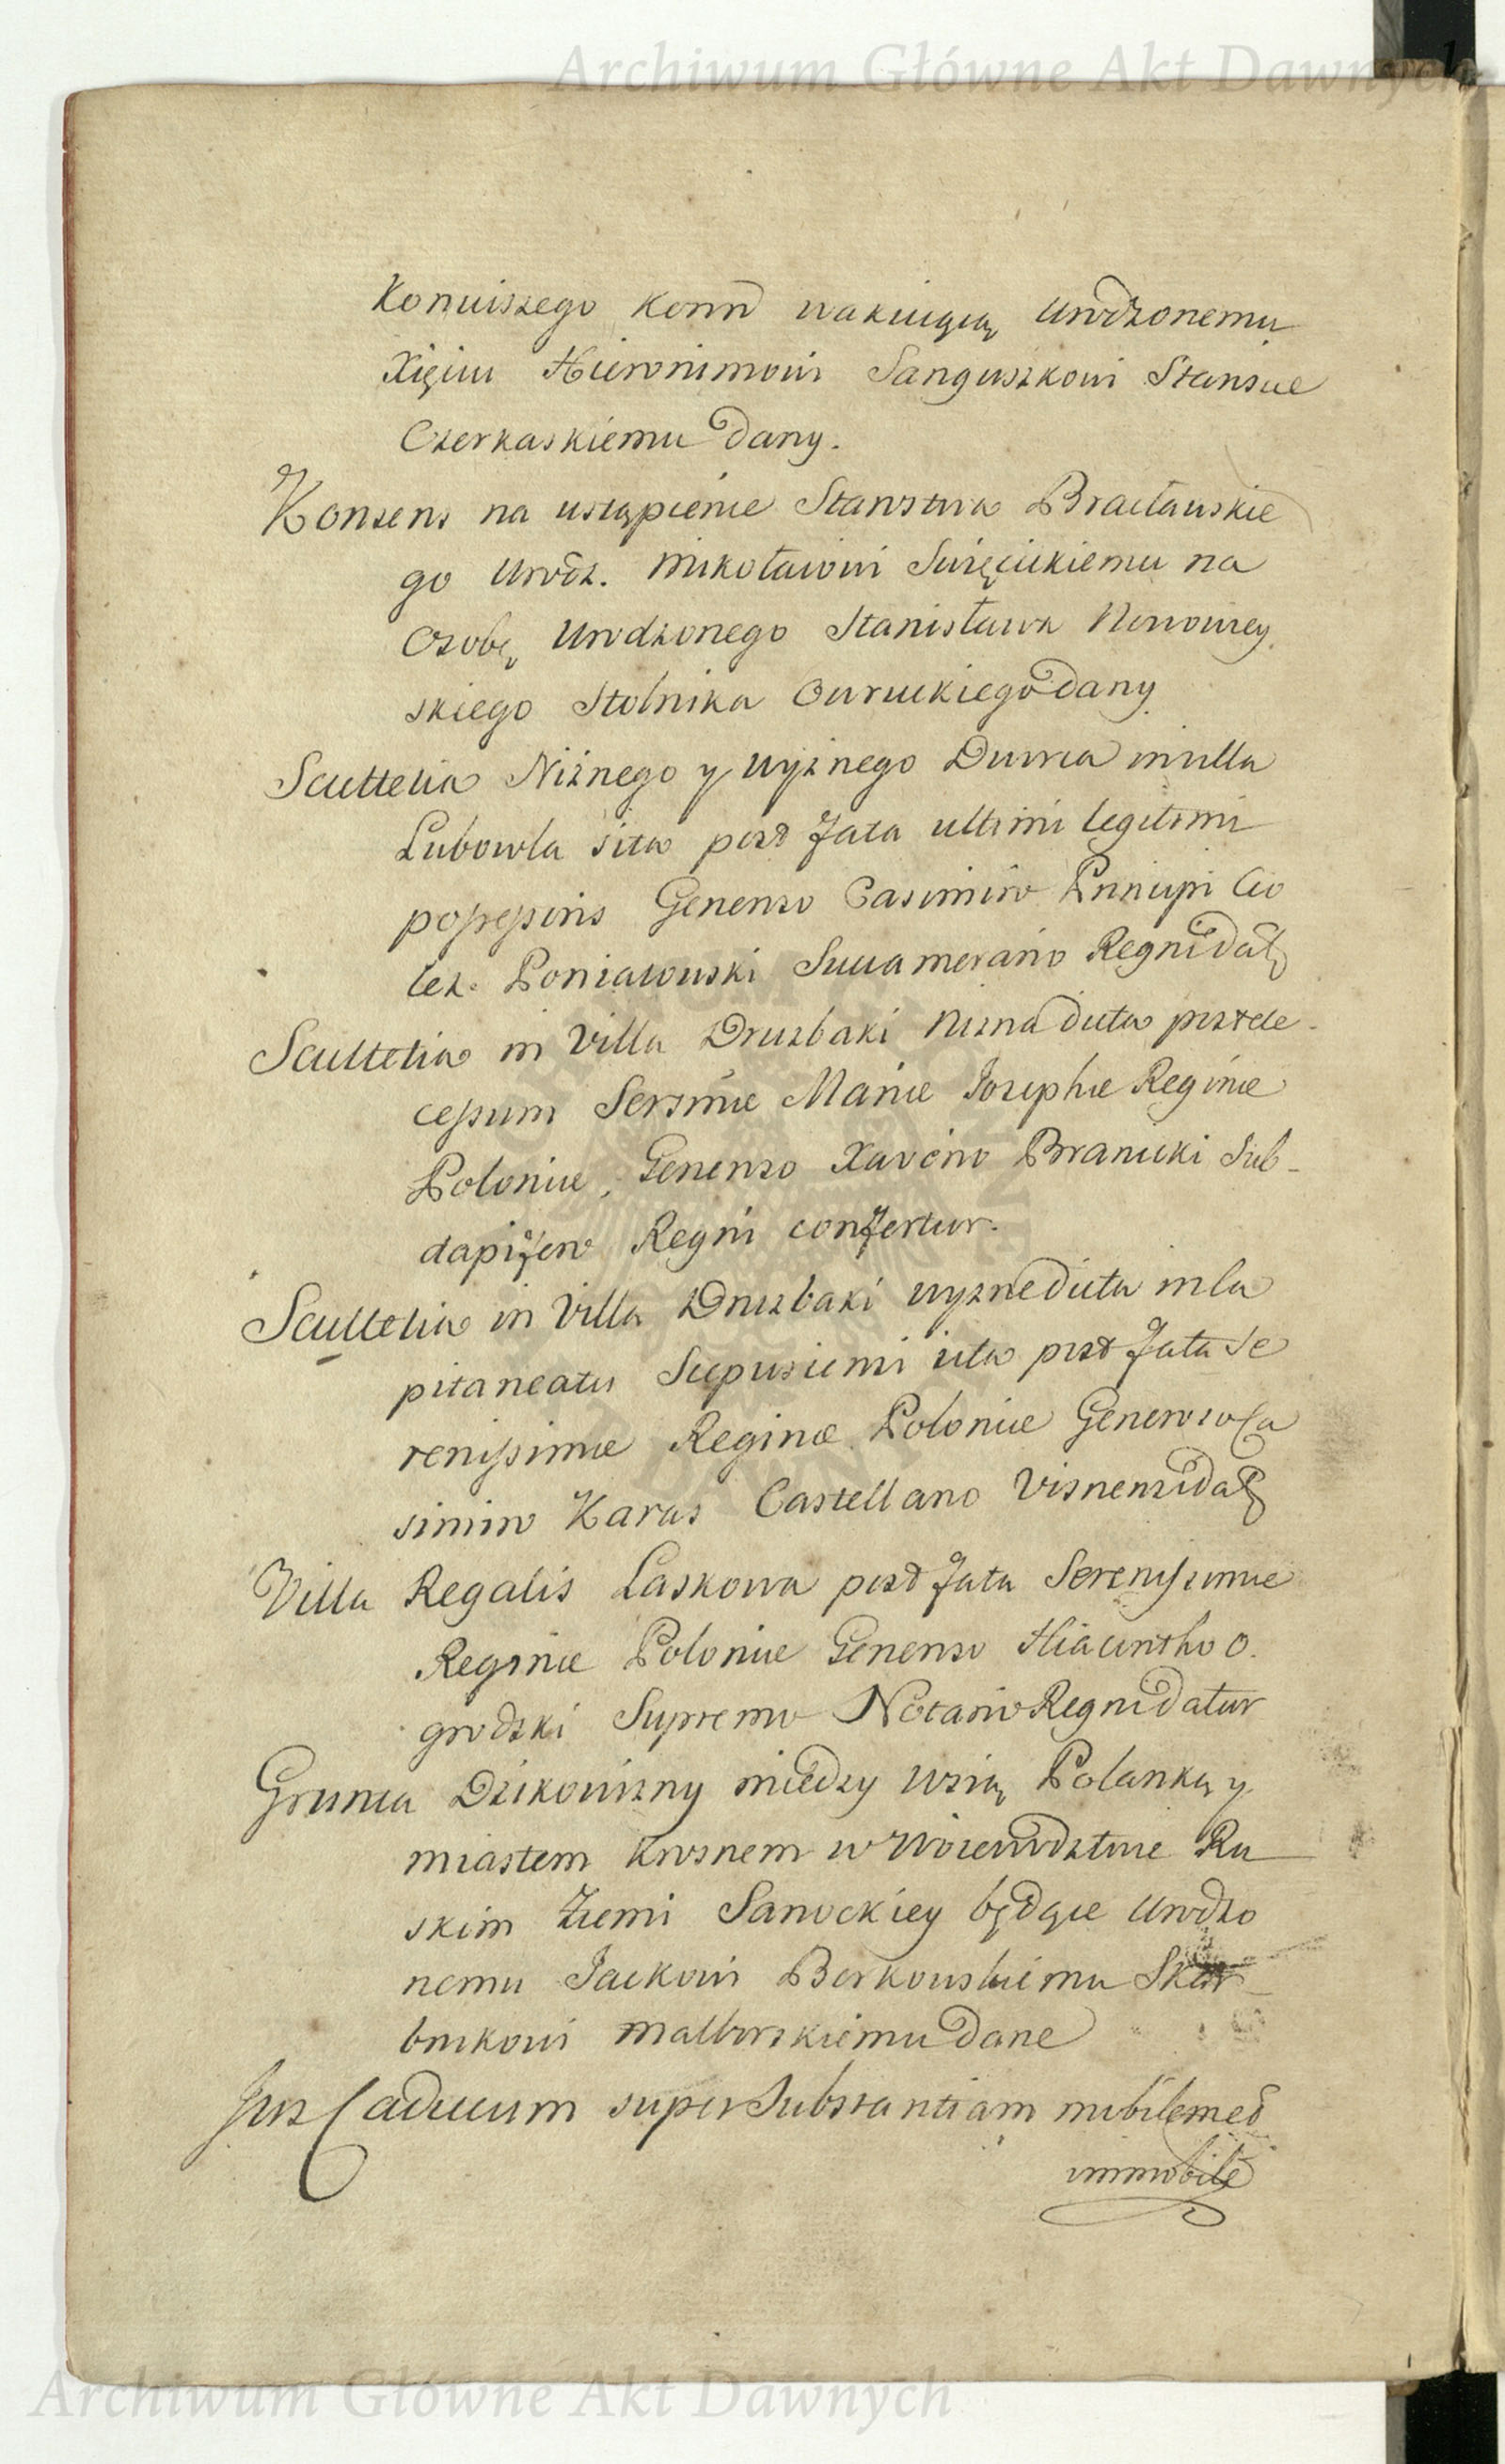 Archiwum Główne Akt Dawnych
Koniuszego Koron wakuiącą Urodzonemu
Xięciu Hieronimowi Sanguszkowi Starosue
Czerkaskiemu dany.
Konsens na ustąpienie Starostwa Bracławskie
go Urodz. Mikołaiowi Swięcickiemu na
Osobę Urodzonego Stanisława Nowowiey
skiego Stolnika Owruckiego dany
Scultetia Niżnego y Wyżnego Dwura in villa
Lubowla sita post fata ultimi legitimi
possessoris Generoso Casimiro Principi Cio
łek. Poniatowski Succamerario Regni datz
Scultetia in Villa Druzbaki Nizna dicta post de
cessum Sersmæ Mariæ Josephæ Reginæ
Poloniæ, Generoso Xaverio Branicki Sub-
dapifero Regni confertur.
Scultetia in Villa Druzbaki wyzne dicta in Ca
pitaneatu Scepusiensi sita post fata Se
renissimæ Reginæ Poloniæ Generoso Ca
simiro Karas Castellano Visnensi datz
Villa Regalis Laskowa post fata Serenissimæ
Reginæ Poloniæ Generoso Hiacintho O.
grodzki Supremo Notario Regni datur
Grunta Dzikowizny między Wsią Polanką y
miastem Krosnem w Woiewodztwie Ru
skim Ziemi Sanockiey będące Urodzo
nemu Jackowi Borkowskiemu Skar
bnikowi Malborskiemu dane
Jus Caducum super Substantiam mobilem et
immobile
Archiwum Główne Akt Dawnych